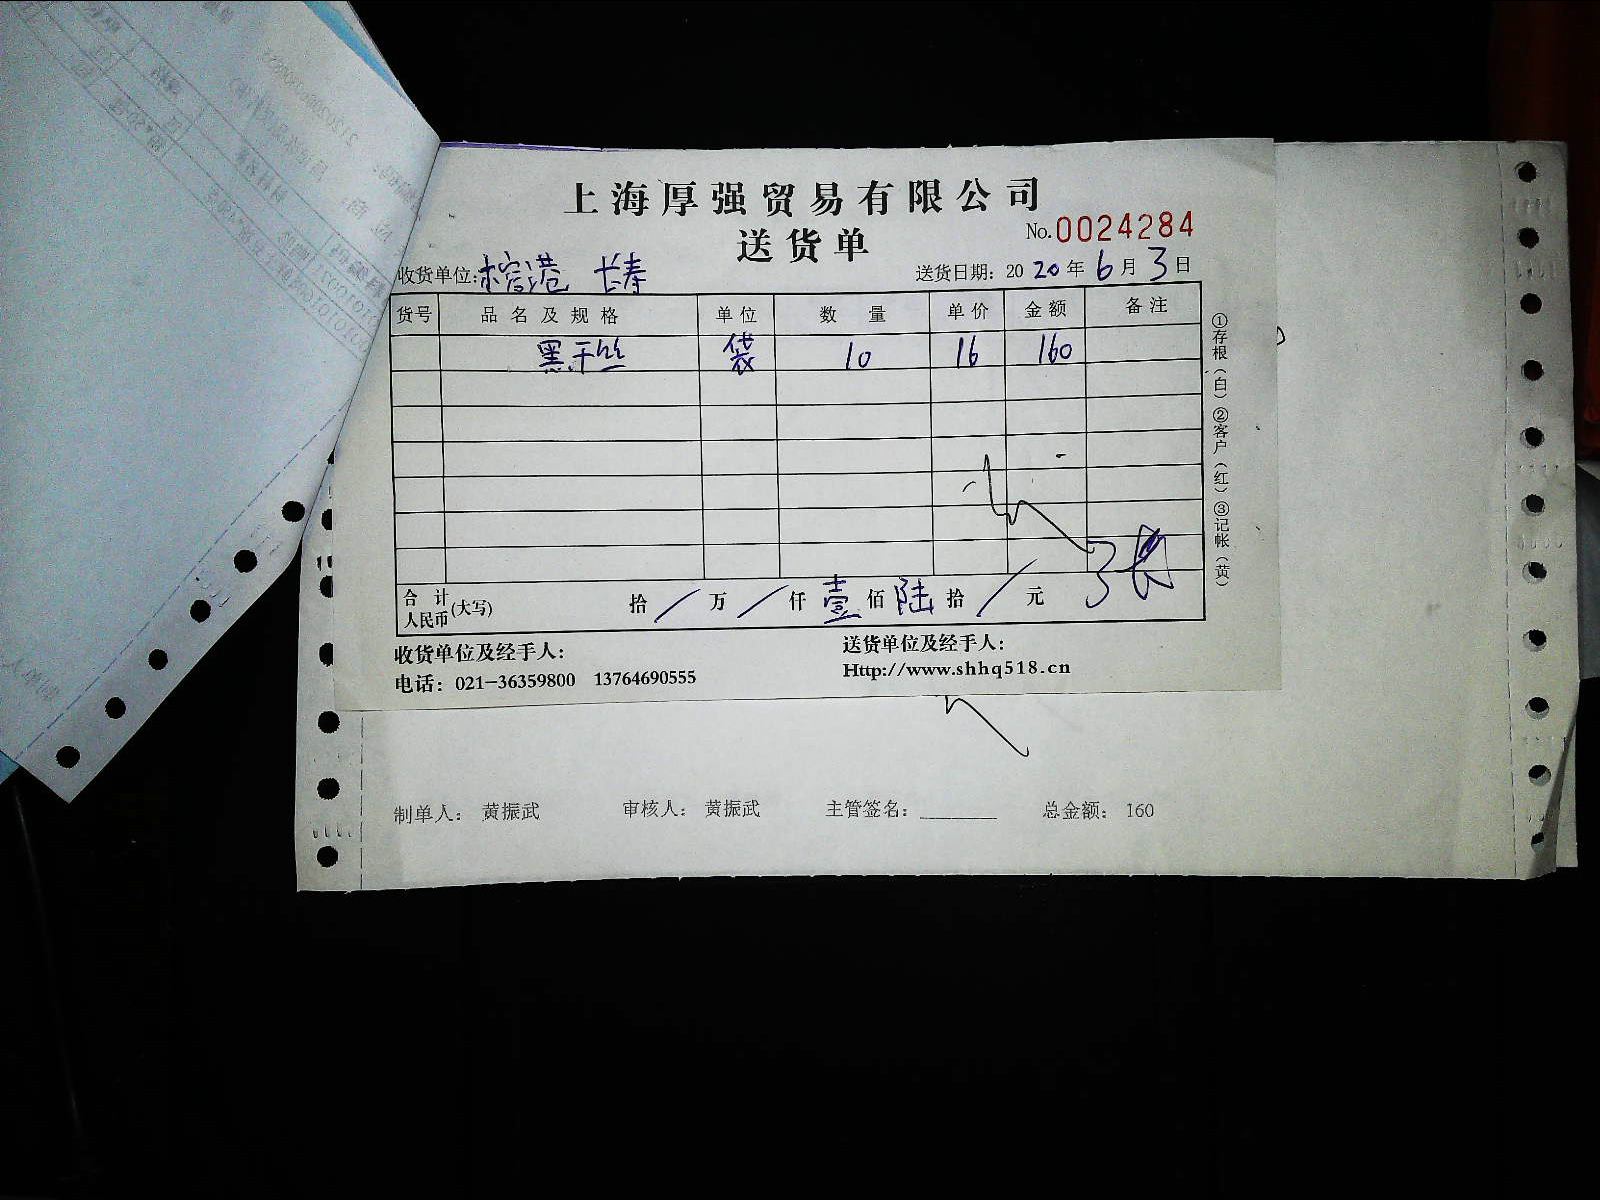 上海厚强贸易有限公司
送货单
No.0024284
收货单位: 榕港 长寿
送货日期: 2020年6月3日
货号 品名及规格 单位 数量 单价 金额 备注
黑干丝 袋 10 16 160
合计人民币(大写) 拾/万/仟壹佰陆拾/元
收货单位及经手人:
送货单位及经手人:
电话: 021-36359800 13764690555
Http://www.shhq518.cn
①存根(白)②客户(红)③记帐(黄)
制单人: 黄振武 审核人: 黄振武 主管签名: 总金额: 160